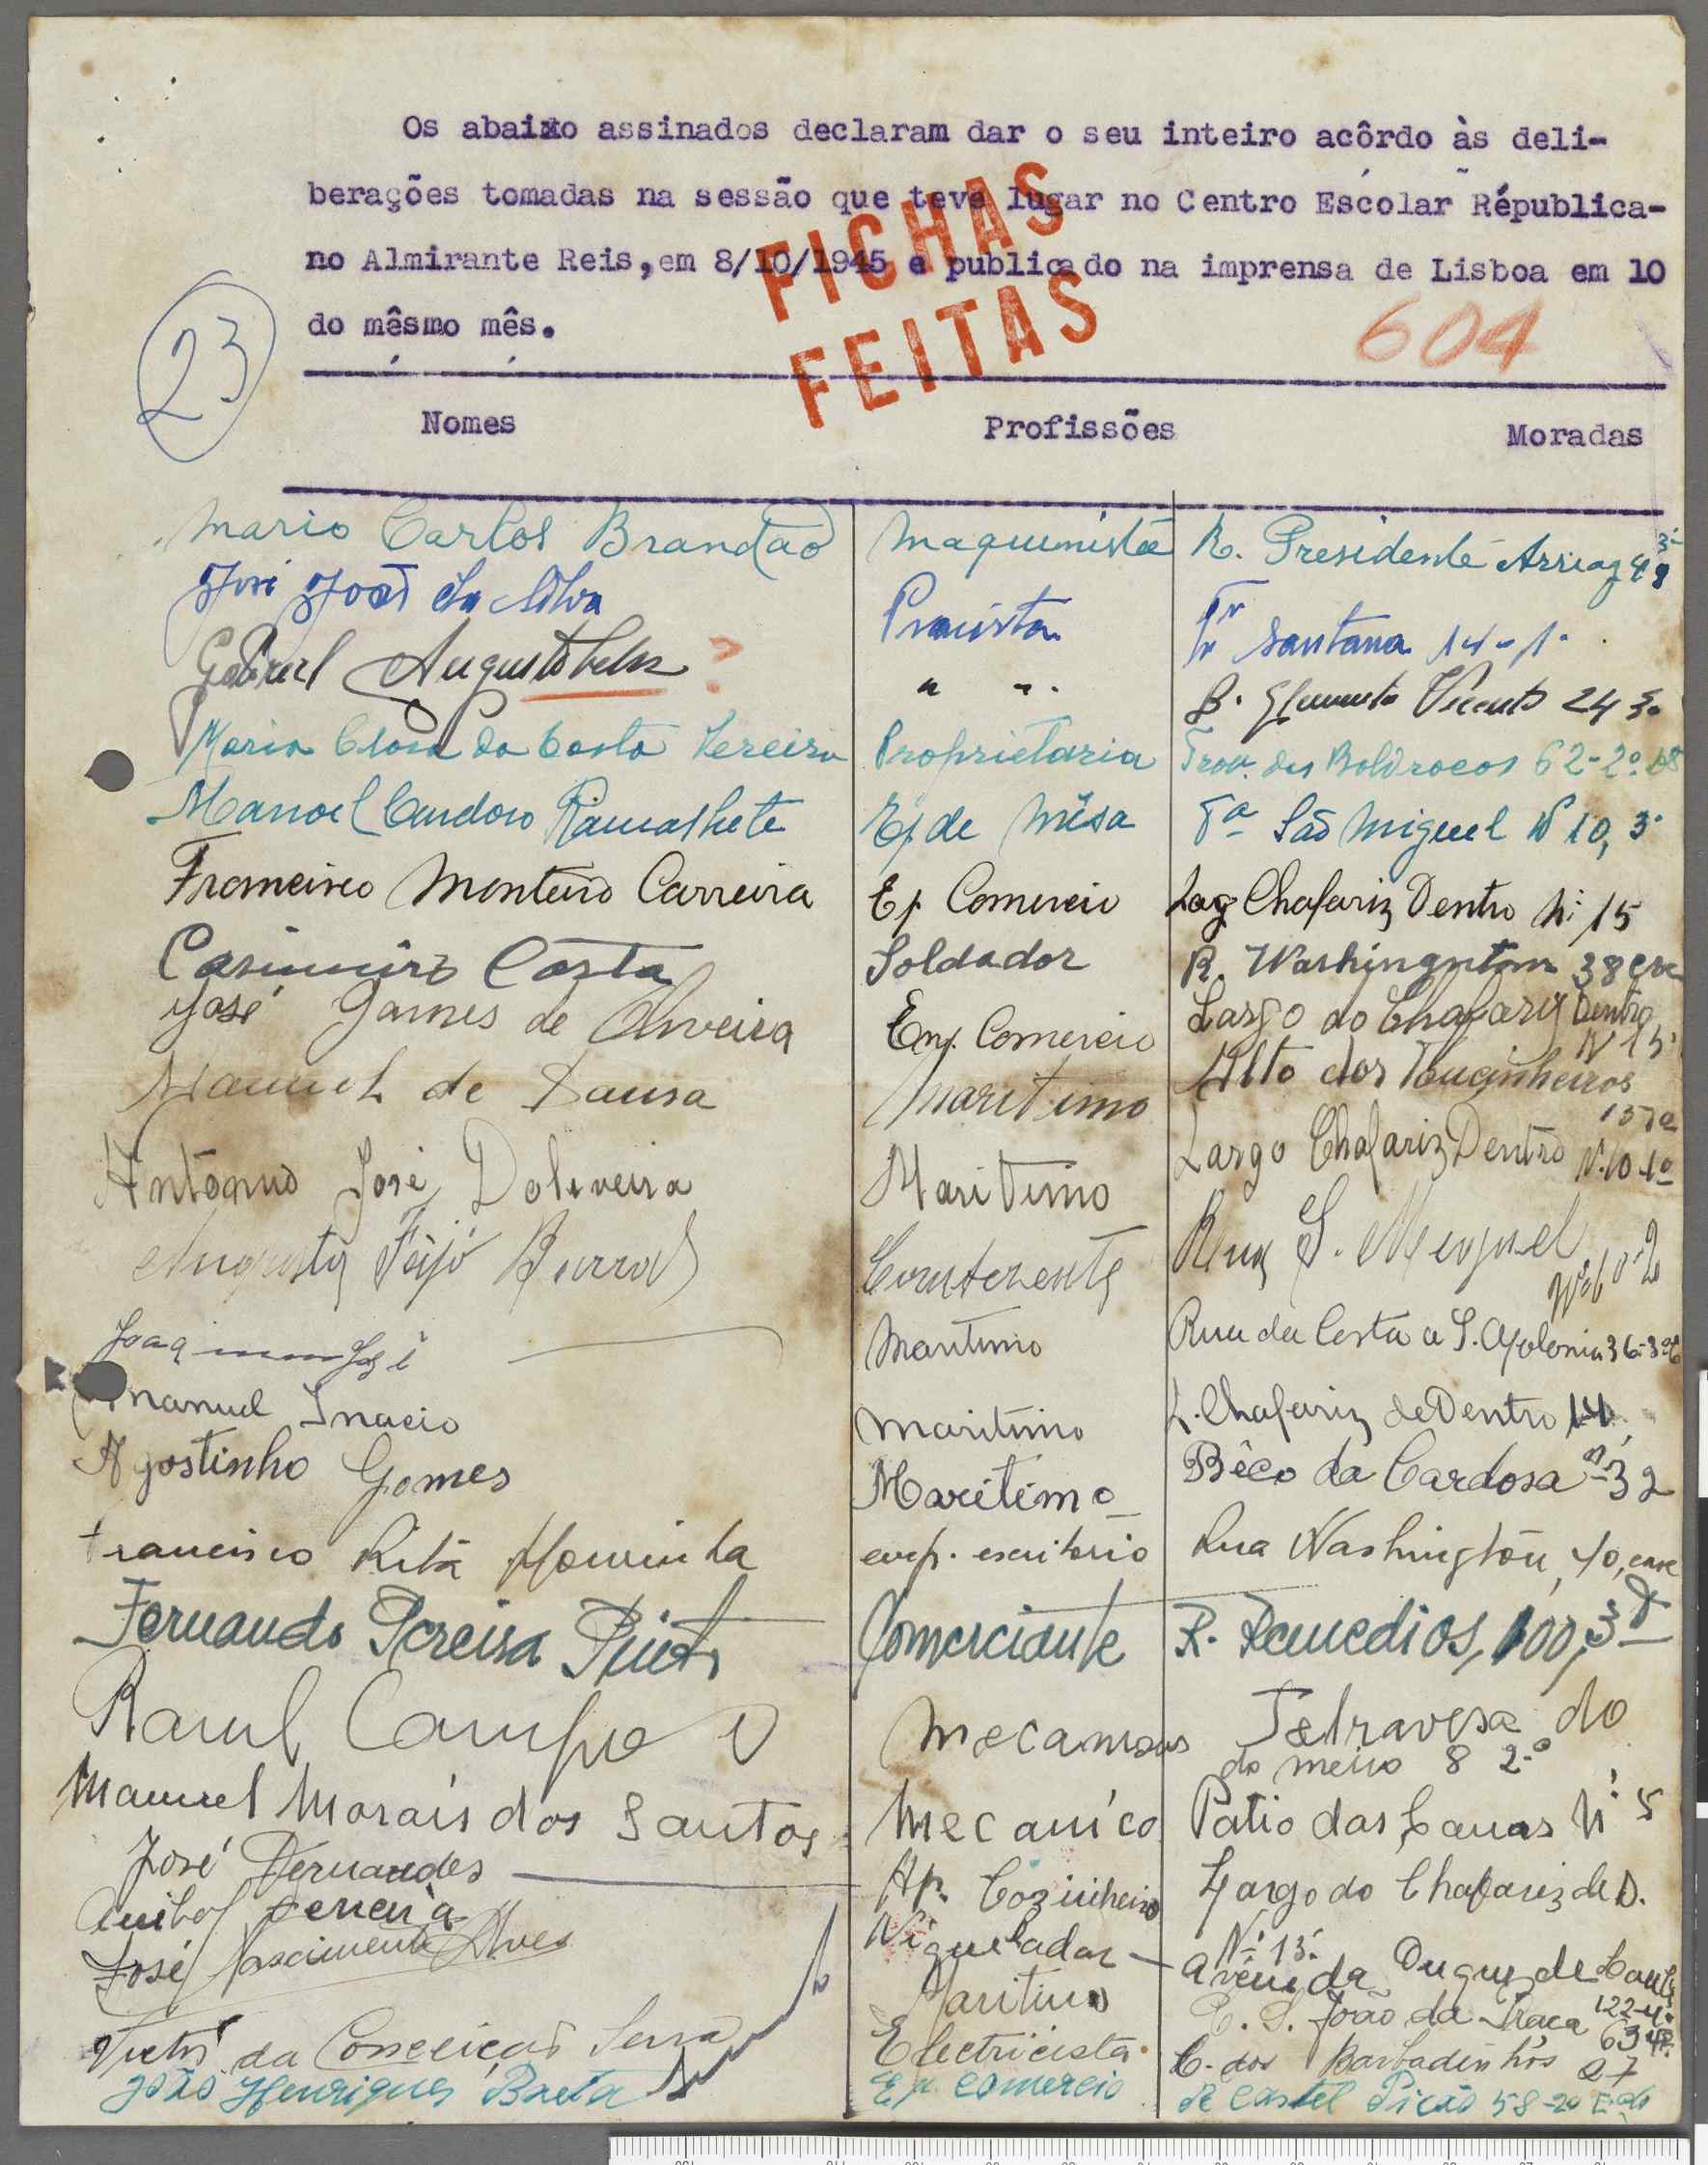 Os abaixo assinados declaram dar o seu inteiro acôrdo às deli-
berações tomadas na sessão que teve lugar no Centro Escolar Républica-
no Almirante Reis, em 8/10/1945 e publicado na imprensa de Lisboa em 10
do mêsmo mês.
FICHAS
FEITAS
604
23
Nomes Profissões Moradas
Mario Carlos Brandão Maquinista R. Presidente Arriaga 49 3º
José João da Silva Tv Santana 14-1º
Gabriel Augusto ? " " R. Vicente 24 3º
Maria da Costa Pereira Proprietaria Trav. das 62-2º
Manoel Cardoso Ramalhete Ep de Mêsa São Miguel Nº 10, 3º
Francisco Monteiro Carreira Ep. Comercio Larg Chafariz Dentro Nº 15
Casimiro Costa Soldador R. Washington 38 cve
José Gomes de Oliveira Emp. Comercio Largo do Chafariz Dentro
Nº 15
Manuel de Sousa Maritimo Alto dos Toucinheiros
Antonio José Doliveira Maritimo Largo Chafariz Dentro N. 10-1º
Augusto Feijó Rua S. Miguel
Joaquim José Maritimo Rua da Costa a S. Apolonia 36-3º
Manuel Inacio Maritimo L. Chafariz de Dentro
Agostinho Gomes Maritimo Bêco da Cardosa nº 32
Francisco Rita Mourinha emp. escritorio Rua Washington, 40, cave
Fernando Pereira Pinto Comerciante R. Remedios, 100, 3º D
Raul Campos Mecanico Tetravesa do
do meio 8 2º
Manuel Morais dos Santos Mecanico Patio das Canas Nº 5
José Fernandes Ap. Cozinheiro Largo do Chafariz de D.
Nº 13.
Anibal Ferreira Niquelador Avenida Duque de
122-4º
José Nascimento Alves Maritimo C. S. João da Praça
Victor da Conceição Serra Electricista C. dos Barbadinhos 27
João Henriques Baeta Ep. Comercio R Castel Picão 58-2º